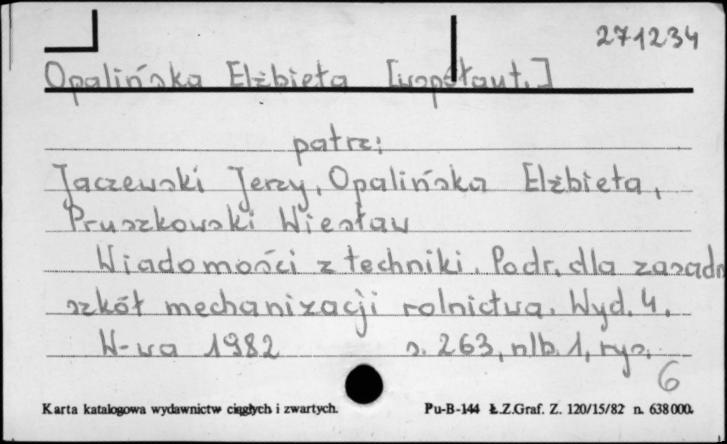 271234
Opalińska Elżbieta [współaut.]
patrz:
Jaczewski Jerzy, Opalińska Elżbieta,
Pruszkowski Wiesław
Wiadomości z techniki. Podr. dla zasadn.
szkół mechanizacji rolnictwa. Wyd. 4.
W-wa 1982 s. 263, nlb. 1, rys.
6
Karta katalogowa wydawnictw ciągłych i zwartych. Pu-B-144 Ł.Z.Graf. Z. 120/15/82 n. 638000.